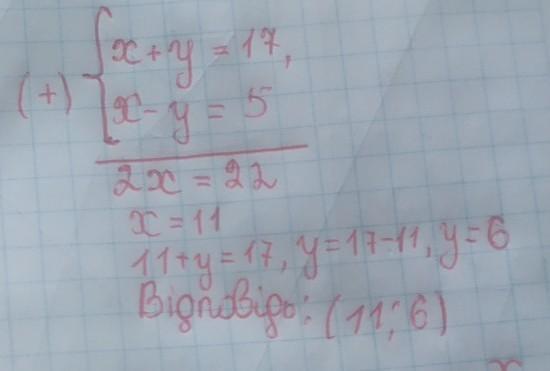 x + y = 17,
(+)
x - y = 5
2x = 22
x = 11
11 + y = 17, y = 17 - 11, y = 6
Відповідь: (11; 6)